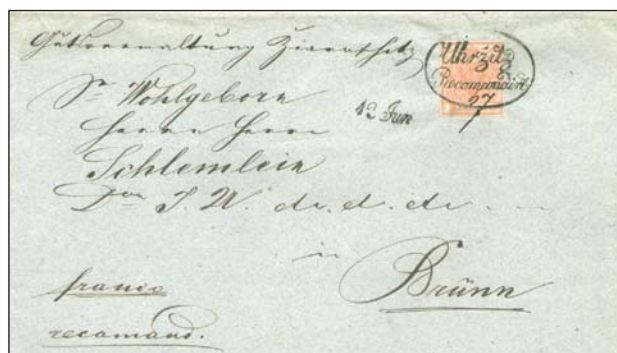 Gutsverwaltung
Uhržitz
Recommandirt
27
12 Jun
Sr Wohlgeborn
Herrn Herrn
Schlemlein
Dor J. U. etc. etc. etc.
in
Brünn
franco
recomand.